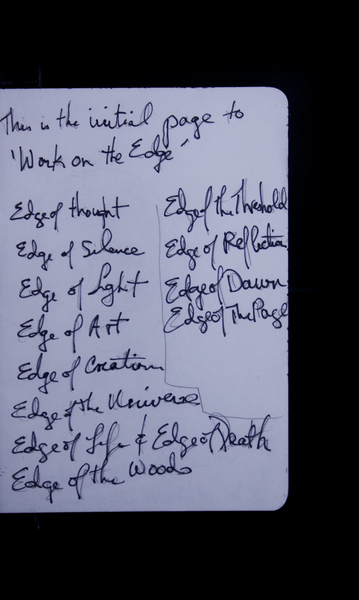 This is the initial page to
'Work on the Edge'
Edge of thought
Edge of Silence
Edge of Light
Edge of Art
Edge of Creation
Edge of the Universe
Edge of Life & Edge of Death
Edge of the Woods
Edge of the Threshold
Edge of Reflection
Edge of Dawn
Edge of the Page